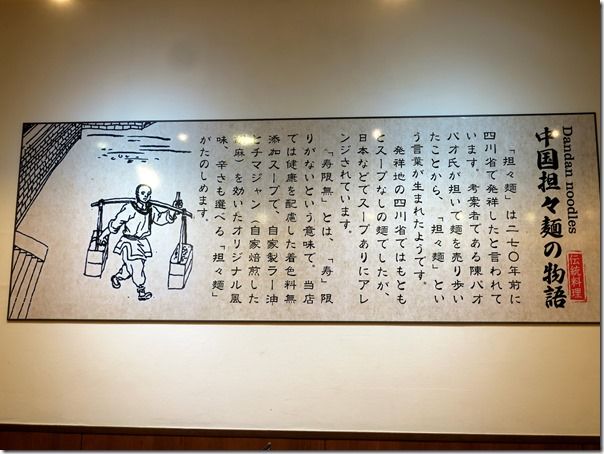 Dandan noodles
中国担々麺の物語
伝統料理
「担々麺」は二七〇年前に
四川省で発祥したと言われて
います。考案者である陳パオ
パオ氏が担いで麺を売り歩い
たことから、「担々麺」とい
う言葉が生まれたようです。
発祥地の四川省ではもとも
とスープなしの麺でしたが、
日本などでスープありにアレ
ンジされています。
「寿限無」とは、「寿」限
りがないという意味で。当店
では健康を配慮した着色料無
添加スープで、自家製ラー油
とチマジャン（自家焙煎した
麻）を効いたオリジナル風
味、辛さも選べる「担々麺」
がたのしめます。